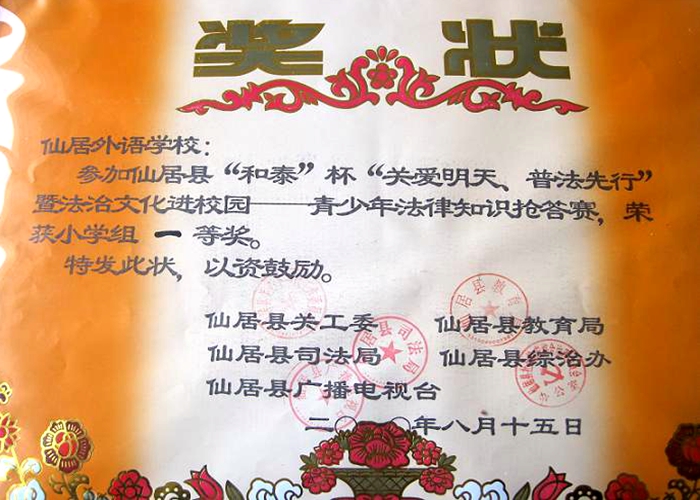 奖 状
仙居外语学校:
参加仙居县“和泰”杯“关爱明天、普法先行”
暨法治文化进校园——青少年法律知识抢答赛,荣
获小学组 一 等奖。
特发此状,以资鼓励。
仙居县关工委 仙居县教育局
仙居县司法局 仙居县综治办
仙居县广播电视台
二〇一〇年八月十五日